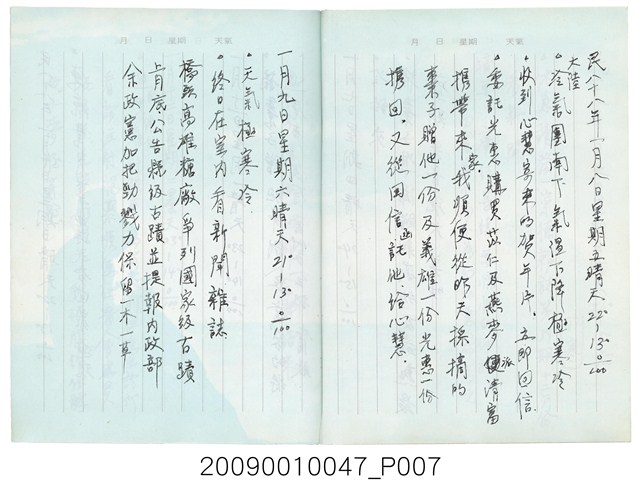 月 日 星期 天氣
民八十八年一月八日星期五晴天22°-13° 0/100
大陸
。冷氣團南下氣溫下降極寒冷
。收到心慧寄來的賀年片。立即回信
。委託光惠購買苡仁及燕麥 派清富
攜帶來我家順便從昨天採摘的
棗子贈他一份及義雄一份光惠一份
攜回。又從回信函託他給心慧。
月 日 星期 天氣
一月九日星期六晴天21°-13° 0/100
。天氣極寒冷
。終日在室內看新聞雜誌
橋頭高雄糖廠爭列國家級古蹟
上月底公告縣級古蹟並提報內政部
余政憲加把勁戮力保留一木一草
20090010047_P007